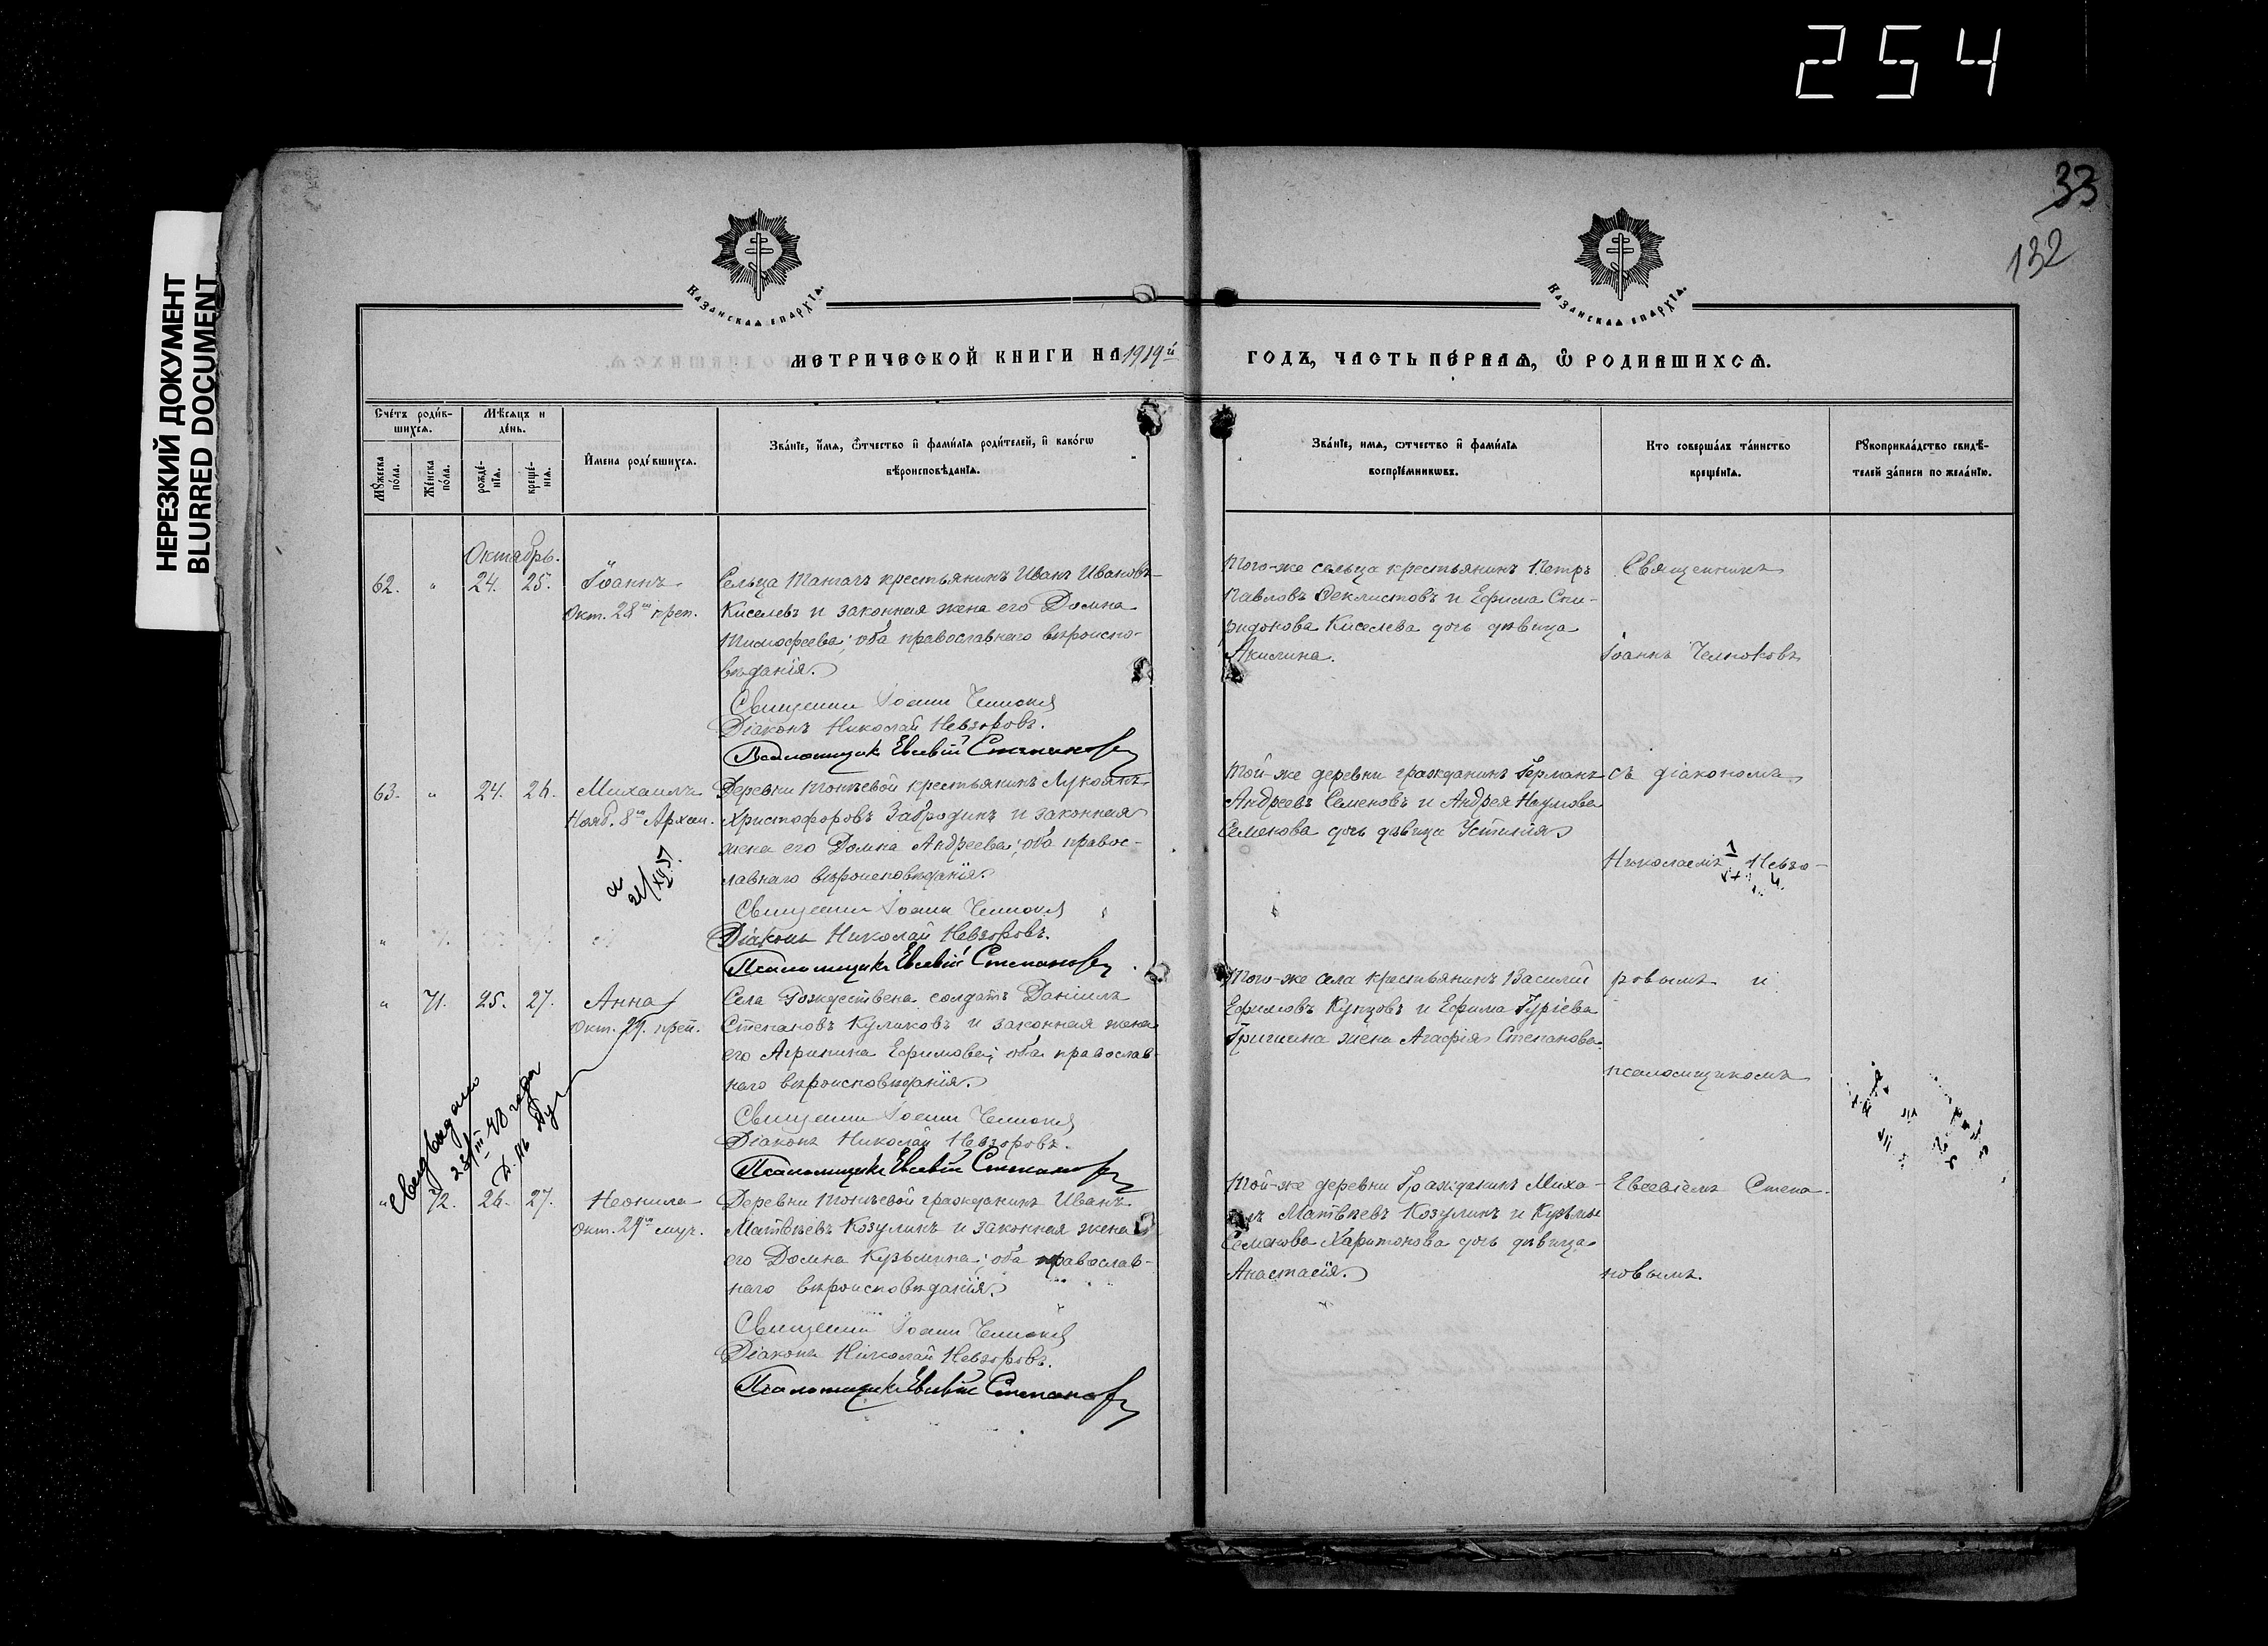 254
НЕРЕЗКИЙ ДОКУМЕНТ
BLURRED DOCUMENT
33
132
КАЗАНСКАѦ ЕПАРХІѦ.
КАЗАНСКАѦ ЕПАРХІѦ.
МЕТРИЧЕСКОЙ КНИГИ НА 1919й
ГОДЪ, ЧАСТЬ ПЕРВАѦ, Ѿ РОДИВШИХСѦ.
Счетъ родив-
шихсѧ.
Мѣсѧцъ и
день.
Мꙋжеска
пола.
Женска
пола.
рожде-
нїѧ.
креще-
нїѧ.
Имена родившихсѧ.
Званїе, имѧ, ѿчество и фамилїѧ родителей, и какогѡ
вѣроисповѣданїѧ.
Званїе, имѧ, ѿчество и фамилїѧ
воспрїемникѡвъ.
Кто совершалъ таинство
крещенїѧ.
Рꙋкоприкладство свидѣ-
телей записи по желанїю.
Октябрь.
62. " 24. 25. Іоаннъ
Окт. 28го преп.
Сельца Танагъ крестьянинъ Иванъ Ивановъ
Киселевъ и законная жена его Домна
Тимофеева; оба православнаго вѣроиспо-
вѣданія.
Священникъ Іоаннъ Челноковъ
Діаконъ Николай Невзоровъ.
Псаломщикъ Евсевій Степановъ
Того-же сельца крестьянинъ Петръ
Павловъ Феклистовъ и Ефима Спи-
ридонова Киселева дочь дѣвица
Акилина.
Священникъ
Іоаннъ Челноковъ
63. " 24. 26. Михаилъ
Нояб. 8го Архан.
Деревни Тонѣевой крестьянинъ Лукоянъ
Христофоровъ Забродинъ и законная
жена его Домна Андреева; оба правос-
лавнаго вѣроисповѣданія.
Священникъ Іоаннъ Челноковъ
Діаконъ Николай Невзоровъ.
Псаломщикъ Евсевій Степановъ
Той-же деревни гражданинъ Германъ
Андреевъ Семеновъ и Андрея Наумова
Семенова дочь дѣвица Устинія
съ діакономъ
Николаемъ Невзо-
" 71. 25. 27. Анна
Окт. 29. преп.
Села Рождествена солдатъ Даніилъ
Степановъ Куликовъ и законная жена
его Агрипина Ефимова; оба православ-
наго вѣроисповѣданія.
Священникъ Іоаннъ Челноковъ
Діаконъ Николай Невзоровъ.
Псаломщикъ Евсевій Степановъ
Того-же села крестьянинъ Василій
Ефимовъ Купцовъ и Ефима Гуріева
Гришина жена Агафія Степанова.
ровымъ и
псаломщикомъ
" 72. 26. 27. Неонила
Окт. 29го муч.
Деревни Тонѣевой гражданинъ Иванъ
Матвѣевъ Козулинъ и законная жена
его Домна Кузьмина; оба православ-
наго вѣроисповѣданія.
Священникъ Іоаннъ Челноковъ
Діаконъ Николай Невзоровъ.
Псаломщикъ Евсевій Степановъ
Той-же деревни Гражданинъ Миха-
илъ Матвѣевъ Козулинъ и Кузьмы
Семенова Харитонова дочь дѣвица
Анастасія.
Евсевіемъ Степа-
новымъ.